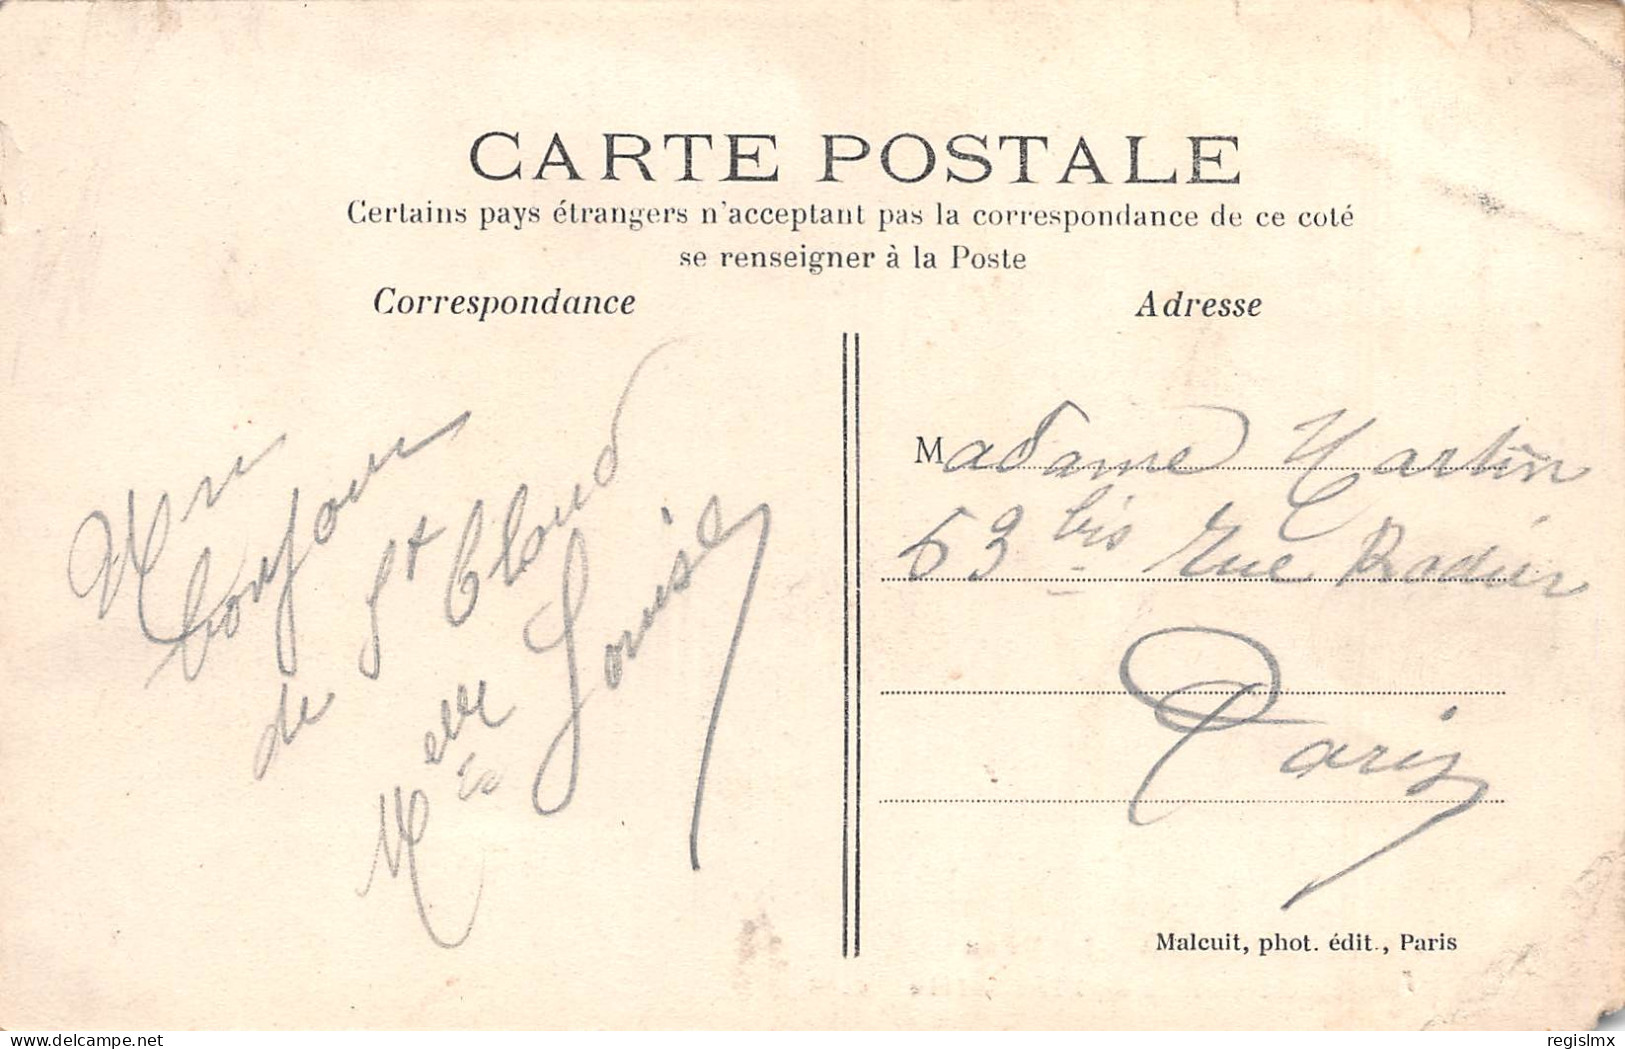 CARTE POSTALE
Certains pays étrangers n'acceptant pas la correspondance de ce coté
se renseigner à la Poste
Correspondance
Adresse
Un
bonjour
de St Cloud
Melle Louise
Madame Martin
63 bis Rue Rodier
Paris
Malcuit, phot. édit., Paris
delcampe.net
regislmx